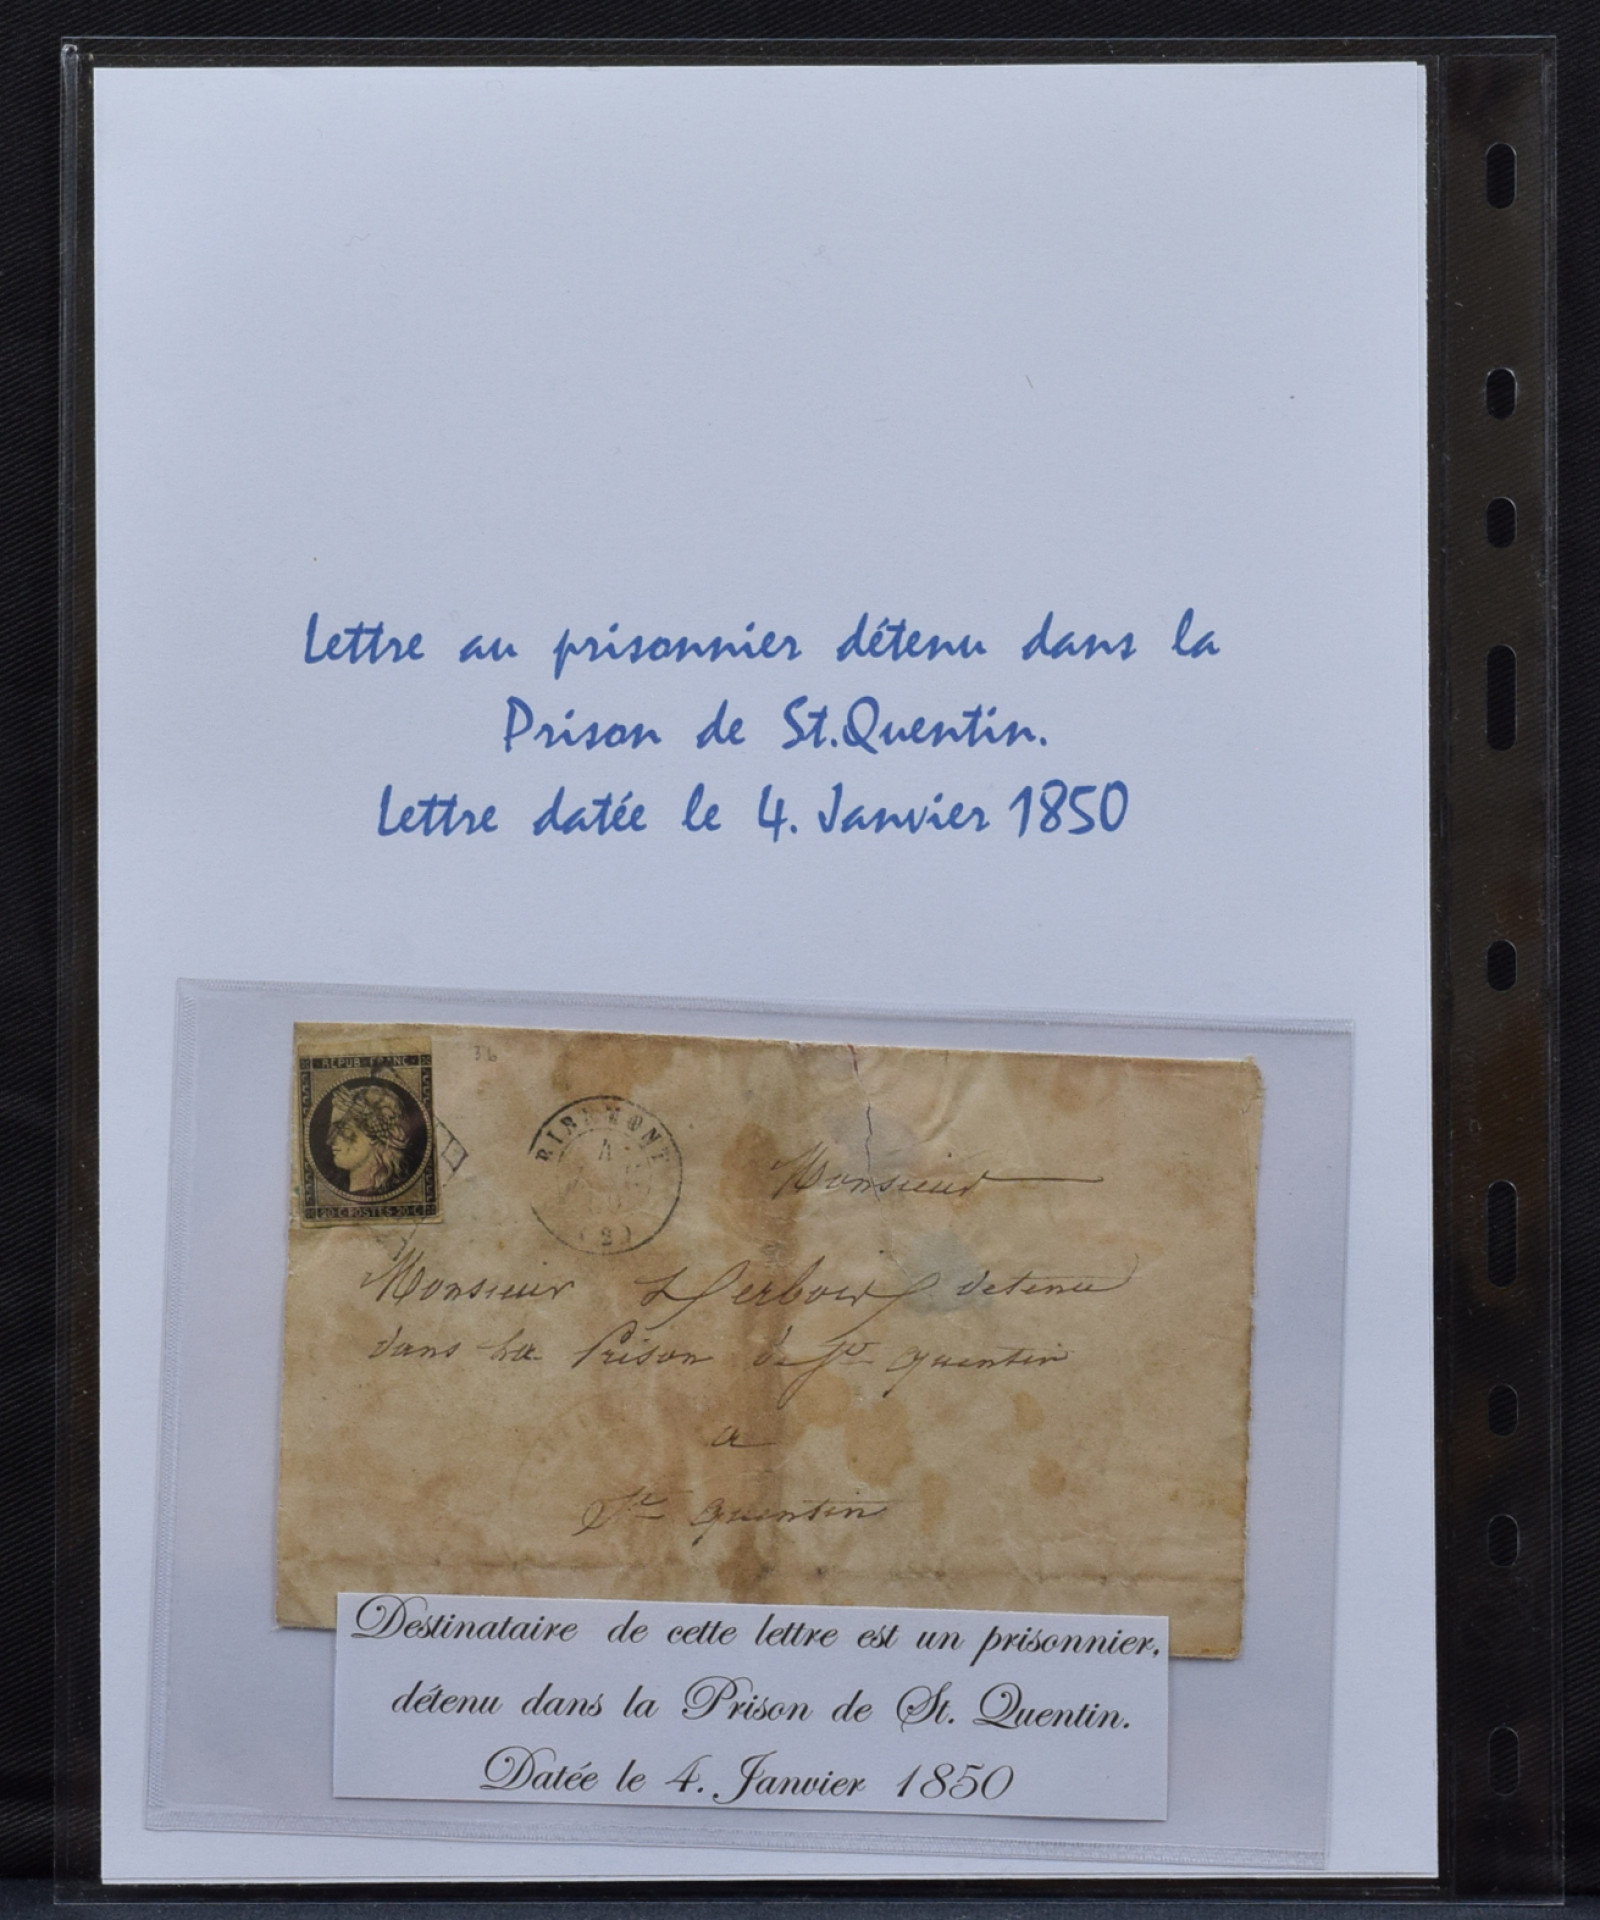 Lettre au prisonnier détenu dans la
Prison de St.Quentin.
Lettre datée le 4. Janvier 1850
36
REPUB FRANC
20 C POSTES 20 C
RIBEMONT
4
(2)
Monsieur
Monsieur Herbour detenu
dans La Prison de St quentin
a
St quentin
Destinataire de cette lettre est un prisonnier,
détenu dans la Prison de St. Quentin.
Datée le 4. Janvier 1850